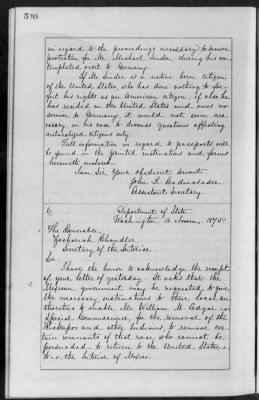 in regard to the proceedings necessary to secure
protection for Mr. Michael Sinder during his con-
templated visit to Germany.
If Mr. Sinder is a native born citizen
of the United States who has done nothing to for-
feit his rights as an American citizen, if also he
has resided in the United States and owes no
service to Germany, it would not seem nec-
essary, in his case to discuss questions affecting
naturalized citizens only.
Full information in regard to passports will
be found in the printed instructions and forms
herewith inclosed.
I am Sir Your obedient servant
John L. Cadwalader
Assistant Secretary.
Department of State
Washington 16 Novem. 1875.
The Honorable,
Zachariah Chandler,
Secretary of the Interior.
Sir:
I have the honor to acknowledge the receipt
of your letter of yesterday. It asks that the
Mexican government may be requested to give
the necessary instructions to their local au-
thorities to enable Mr. William M. Edgar
Special Commissioner, for the removal of the
Kickapoo and other Indians, to remove cer-
tain remnants of that race, who cannot be
persuaded to return to the United States,
to the Interior of Mexico.